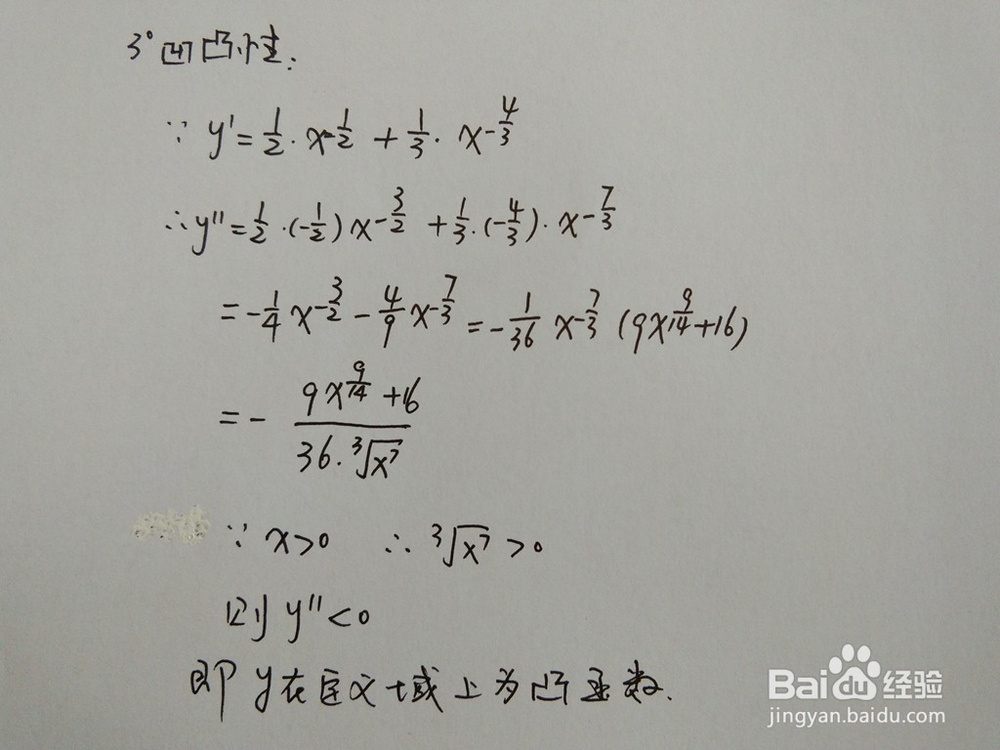 3° 凹凸性:
∵ y' = 1/2 · x^(-1/2) + 1/3 · x^(-4/3)
∴ y'' = 1/2 · (-1/2) x^(-3/2) + 1/3 · (-4/3) · x^(-7/3)
= -1/4 x^(-3/2) - 4/9 x^(-7/3) = -1/36 x^(-7/3) (9x^(9/14) + 16)
= - (9x^(9/14) + 16) / (36 · ³√x⁷)
∵ x>0 ∴ ³√x⁷ >0
则 y''<0
即 y在定义域上为凸函数.
Baidu 经验
jingyan.baidu.com